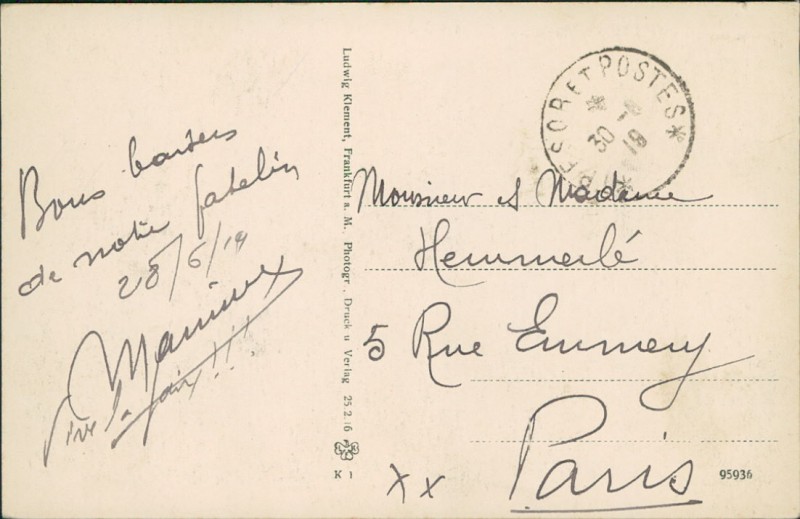 Bons baisers
de notre patelin
28/6/19
Vive la paix !!!
Ludwig Klement, Frankfurt a. M. Photogr., Druck u Verlag 25.2.16
K 1
TRESOR ET POSTES
30 -6 19
Monsieur et Madame
Hemmerlé
5 Rue Emmery
Paris
xx
95936